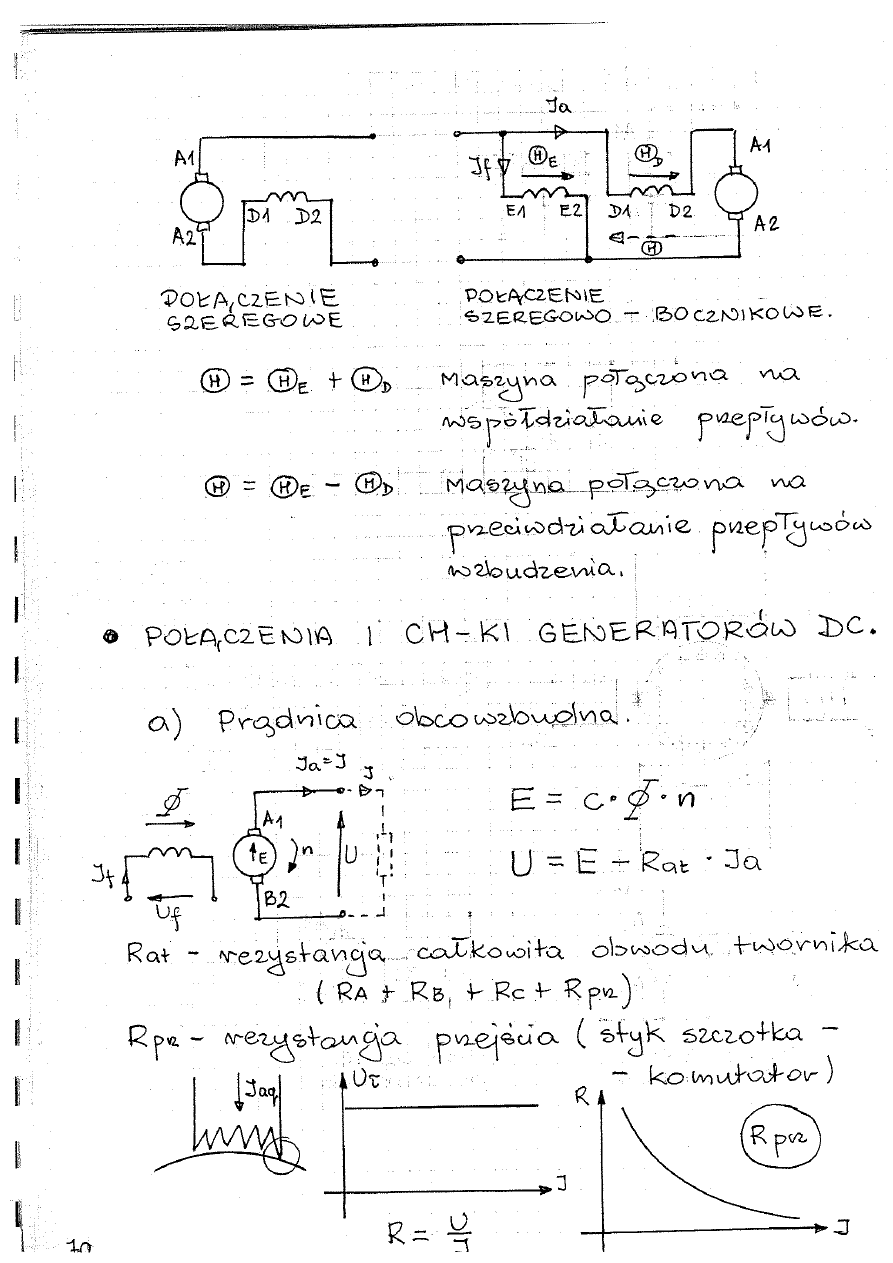 Ja
A1
A2
D1 D2
Jf
ⒽE
ⒽD
E1 E2 D1 D2
A1
A2
Ⓗ
POŁĄCZENIE
SZEREGOWE
POŁĄCZENIE
SZEREGOWO – BOCZNIKOWE.
Ⓗ = ⒽE + ⒽD Maszyna połączona na
współdziałanie przepływów.
Ⓗ = ⒽE – ⒽD Maszyna połączona na
przeciwdziałanie przepływów
wzbudzenia.
• POŁĄCZENIA I CH-KI GENERATORÓW DC.
a) Prądnica obcowzbudna.
Ja=J J
Φ
A1
E
n
U
Jf
Uf
B2
E = c·Φ·n
U = E – Rat · Ja
Rat – rezystancja całkowita obwodu twornika
(RA + RB + RC + Rprz)
Rprz – rezystancja przejścia (styk szczotka –
– komutator)
Jaq
J
R = U/J
R
Rprz
J
10